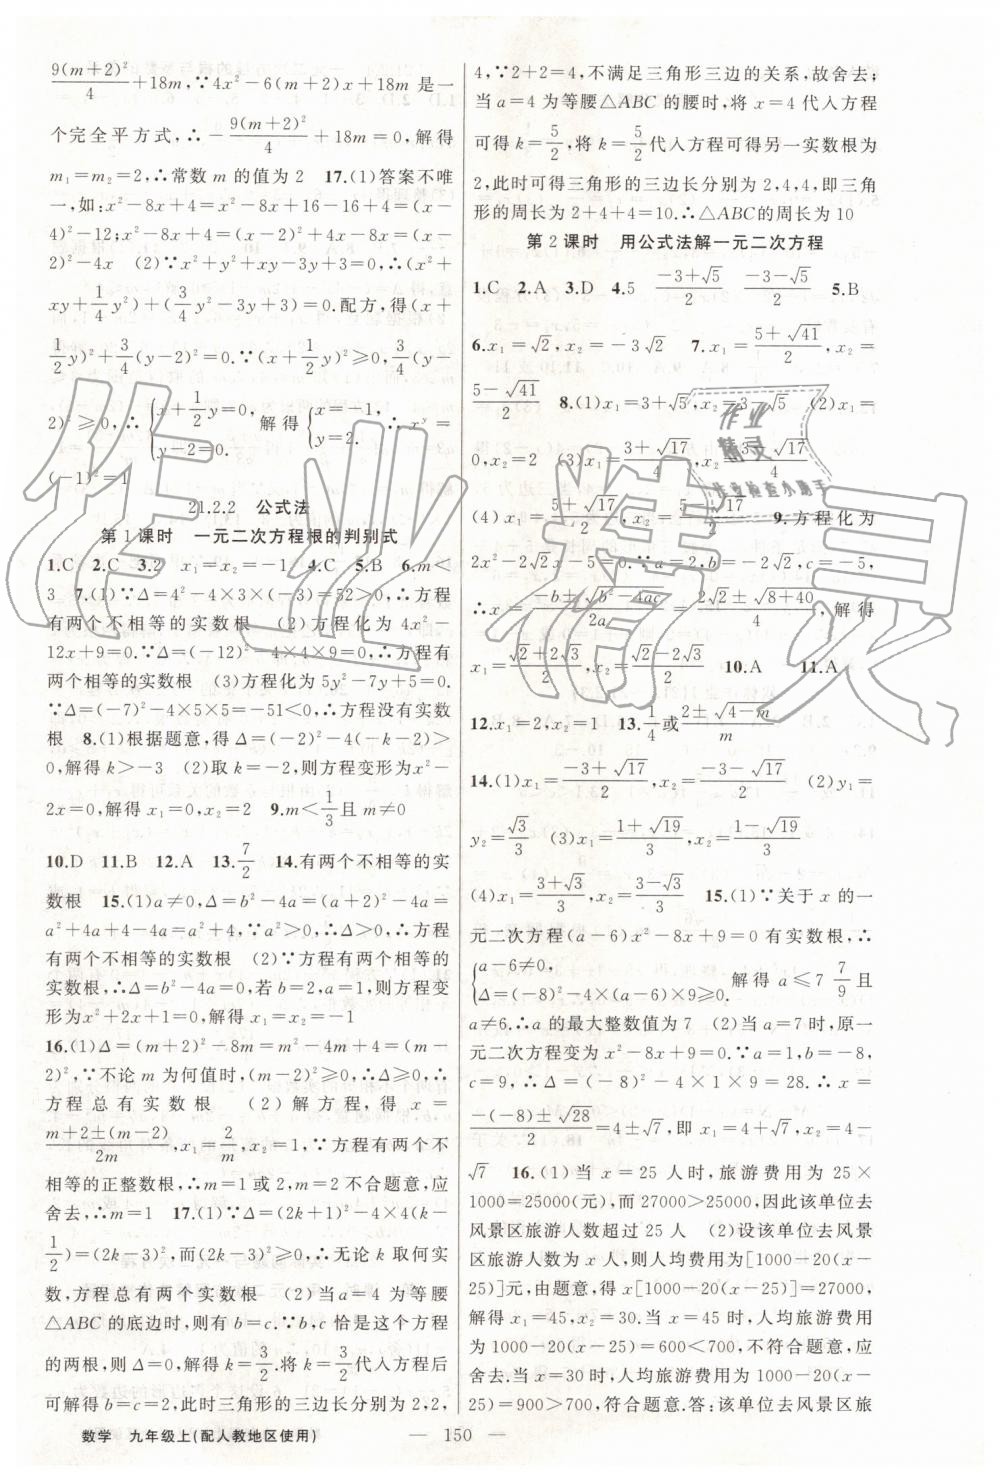 9(m+2)²/4+18m,∵4x²-6(m+2)x+18m 是一
个完全平方式,∴-9(m+2)²/4+18m=0,解得
m₁=m₂=2,∴常数 m 的值为 2　17.(1)答案不唯
一,如:x²-8x+4=x²-8x+16-16+4=(x-
4)²-12;x²-8x+4=(x-2)²+4x-8x=(x-
2)²-4x　(2)∵x²+y²+xy-3y+3=0,∴(x²+
xy+1/4y²)+(3/4y²-3y+3)=0.配方,得(x+
1/2y)²+3/4(y-2)²=0.∵(x+1/2y)²≥0,3/4(y-
2)²≥0,∴{x+1/2y=0, y-2=0. 解得{x=-1, y=2. ∴x^y=
(-1)²=1
21.2.2　公式法
第1课时　一元二次方程根的判别式
1.C　2.C　3.2　x₁=x₂=-1　4.C　5.B　6.m<
3　7.(1)∵Δ=4²-4×3×(-3)=52>0,∴方程
有两个不相等的实数根　(2)方程化为 4x²-
12x+9=0.∵Δ=(-12)²-4×4×9=0,∴方程有
两个相等的实数根　(3)方程化为 5y²-7y+5=0.
∵Δ=(-7)²-4×5×5=-51<0,∴方程没有实数
根　8.(1)根据题意,得 Δ=(-2)²-4(-k-2)>
0,解得 k>-3　(2)取 k=-2,则方程变形为 x²-
2x=0,解得 x₁=0,x₂=2　9.m<1/3且 m≠0
10.D　11.B　12.A　13.7/2　14.有两个不相等的实
数根　15.(1)a≠0,Δ=b²-4a=(a+2)²-4a=
a²+4a+4-4a=a²+4,∵a²>0,∴Δ>0,∴方程
有两个不相等的实数根　(2)∵方程有两个相等
的实数根,∴Δ=b²-4a=0,若 b=2,a=1,则方程变
形为x²+2x+1=0,解得 x₁=x₂=-1
16.(1)Δ=(m+2)²-8m=m²-4m+4=(m-
2)²,∵不论 m 为何值时,(m-2)²≥0,∴Δ≥0,∴
方程总有实数根　(2)解方程,得 x=
m+2±(m-2)/2m,x₁=2/m,x₂=1,∵方程有两个不
相等的正整数根,∴m=1 或 2,m=2 不合题意,应
舍去,∴m=1　17.(1)∵Δ=(2k+1)²-4×4(k-
1/2)=(2k-3)²,而(2k-3)²≥0,∴无论 k 取何实
数,方程总有两个实数根　(2)当 a=4 为等腰
△ABC 的底边时,则有 b=c.∵b、c 恰是这个方程
的两根,则 Δ=0,解得 k=3/2.将 k=3/2代入方程后
可解得 b=c=2,此时三角形的三边长分别为 2,2,
4,∵2+2=4,不满足三角形三边的关系,故舍去;
当 a=4 为等腰△ABC 的腰时,将 x=4 代入方程
可得 k=5/2,将 k=5/2代入方程可得另一实数根为
2,此时可得三角形的三边长分别为 2,4,4,即三角
形的周长为 2+4+4=10.∴△ABC的周长为 10
第2课时　用公式法解一元二次方程
1.C　2.A　3.D　4.5　(-3+√5)/2　(-3-√5)/2　5.B
6.x₁=√2,x₂=-3√2　7.x₁=(5+√41)/2,x₂=
(5-√41)/2　8.(1)x₁=3+√5,x₂=3-√5　(2)x₁=
0,x₂=2　(3)x₁=(3+√17)/4,x₂=(3-√17)/4
(4)x₁=(5+√17)/2,x₂=(5-√17)/2　9.方程化为
2x²-2√2x-5=0.∵a=2,b=-2√2,c=-5,
∴x=(-b±√(b²-4ac))/2a=(2√2±√(8+40))/4,解得
x₁=(√2+2√3)/2,x₂=(√2-2√3)/2　10.A　11.A
12.x₁=2,x₂=1　13.1/4或(2±√(4-m))/m
14.(1)x₁=(-3+√17)/2,x₂=(-3-√17)/2　(2)y₁=
y₂=√3/3　(3)x₁=(1+√19)/3,x₂=(1-√19)/3
(4)x₁=(3+√3)/3,x₂=(3-√3)/3　15.(1)∵关于 x 的一
元二次方程(a-6)x²-8x+9=0 有实数根,∴
{a-6≠0, Δ=(-8)²-4×(a-6)×9≥0. 解得 a≤7 7/9且
a≠6.∴a 的最大整数值为 7　(2)当 a=7 时,原一
元二次方程变为 x²-8x+9=0.∵a=1,b=-8,
c=9,∴Δ=(-8)²-4×1×9=28.∴x=
(-(-8)±√28)/2=4±√7,即 x₁=4+√7,x₂=4-
√7　16.(1)当 x=25 人时,旅游费用为 25×
1000=25000(元),而 27000>25000,因此该单位去
风景区旅游人数超过 25 人　(2)设该单位去风景
区旅游人数为 x 人,则人均费用为[1000-20(x-
25)]元,由题意,得 x[1000-20(x-25)]=27000,
解得 x₁=45,x₂=30.当 x=45 时,人均旅游费用
为 1000-20(x-25)=600<700,不符合题意,应
舍去.当 x=30 时,人均旅游费用为 1000-20(x-
25)=900>700,符合题意.答:该单位去风景区旅
数学　九年级上(配人教地区使用)
— 150 —
作业精灵
作业
精灵
作业检查小助手